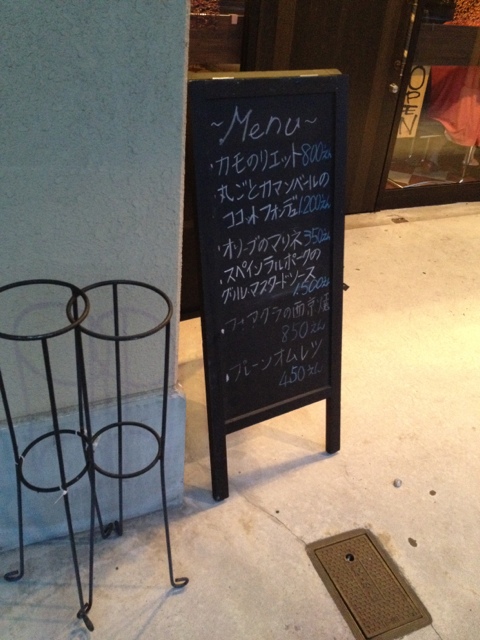 ~Menu~
・カモのリエット800えん
丸ごとカマンベールの
ココットフォンデュ1200えん
・オリーブのマリネ350えん
・スペインラルポークの
グリル・マスタードソース
1,500えん
・フォアグラの西京焼
850えん
・プレーンオムレツ
450えん
OPEN